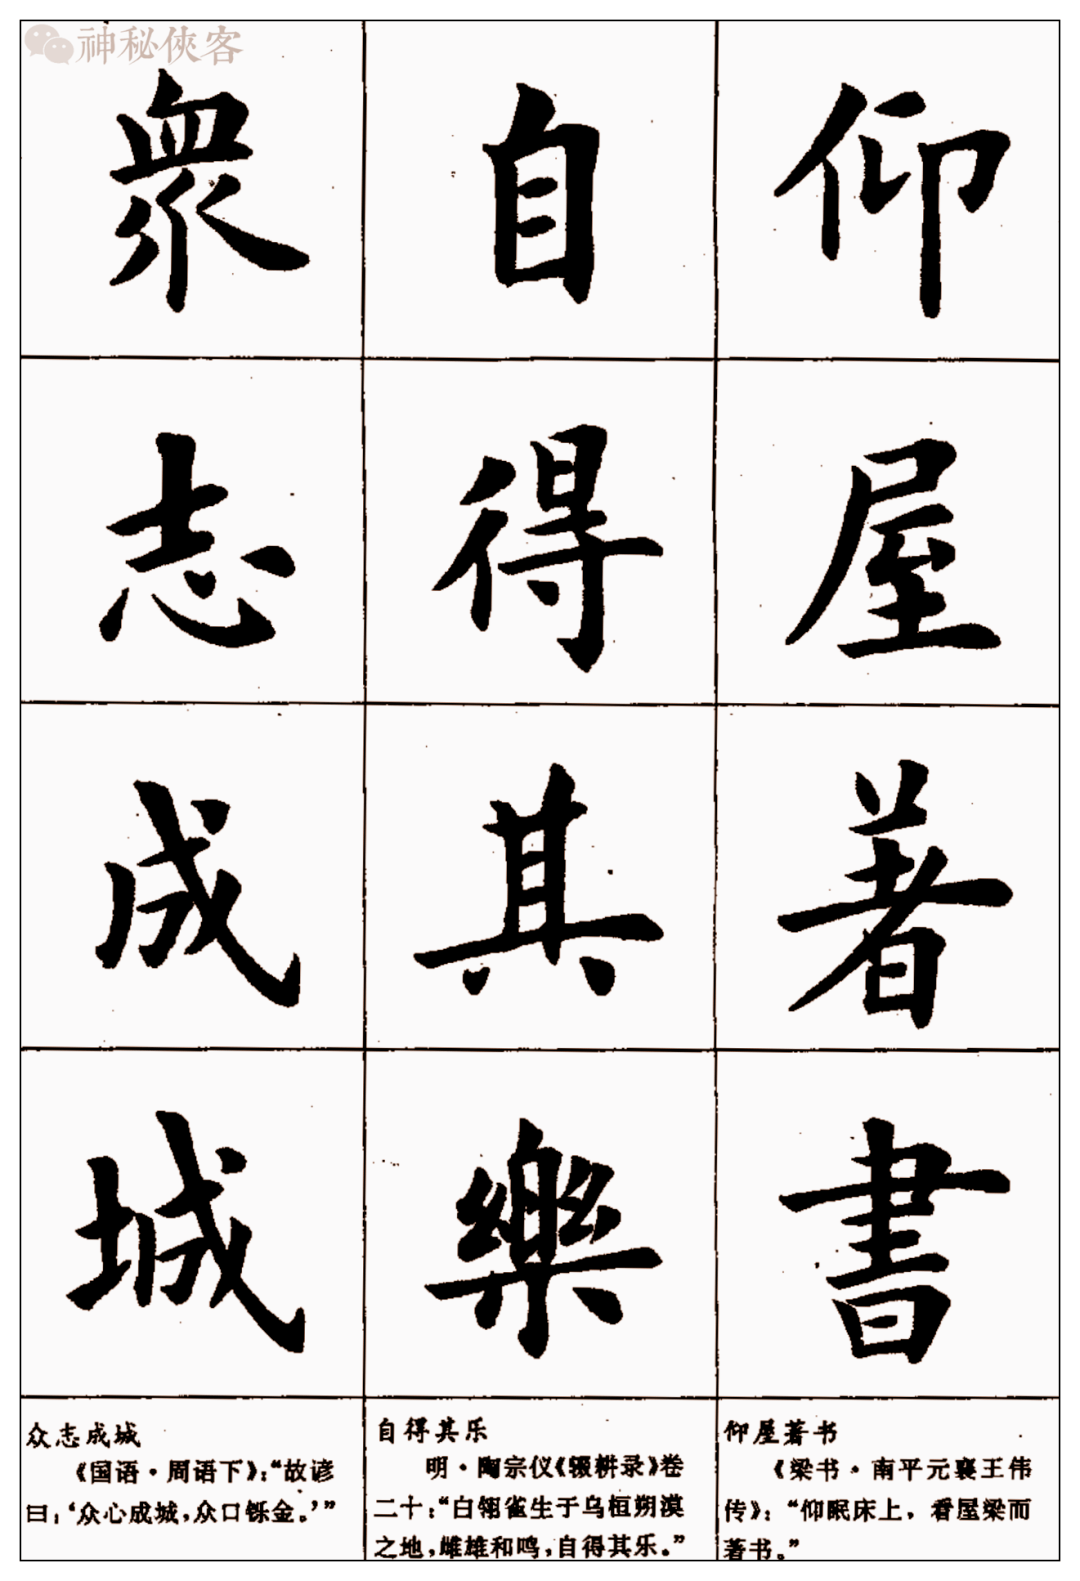 神秘侠客
仰屋著書
自得其樂
眾志成城
仰屋著书
《梁书·南平元襄王伟
传》：“仰眠床上，看屋梁而
著书。”
自得其乐
明·陶宗仪《辍耕录》卷
二十：“白翎雀生于乌桓朔漠
之地，雌雄和鸣，自得其乐。”
众志成城
《国语·周语下》：“故谚
曰：‘众心成城，众口铄金。’”